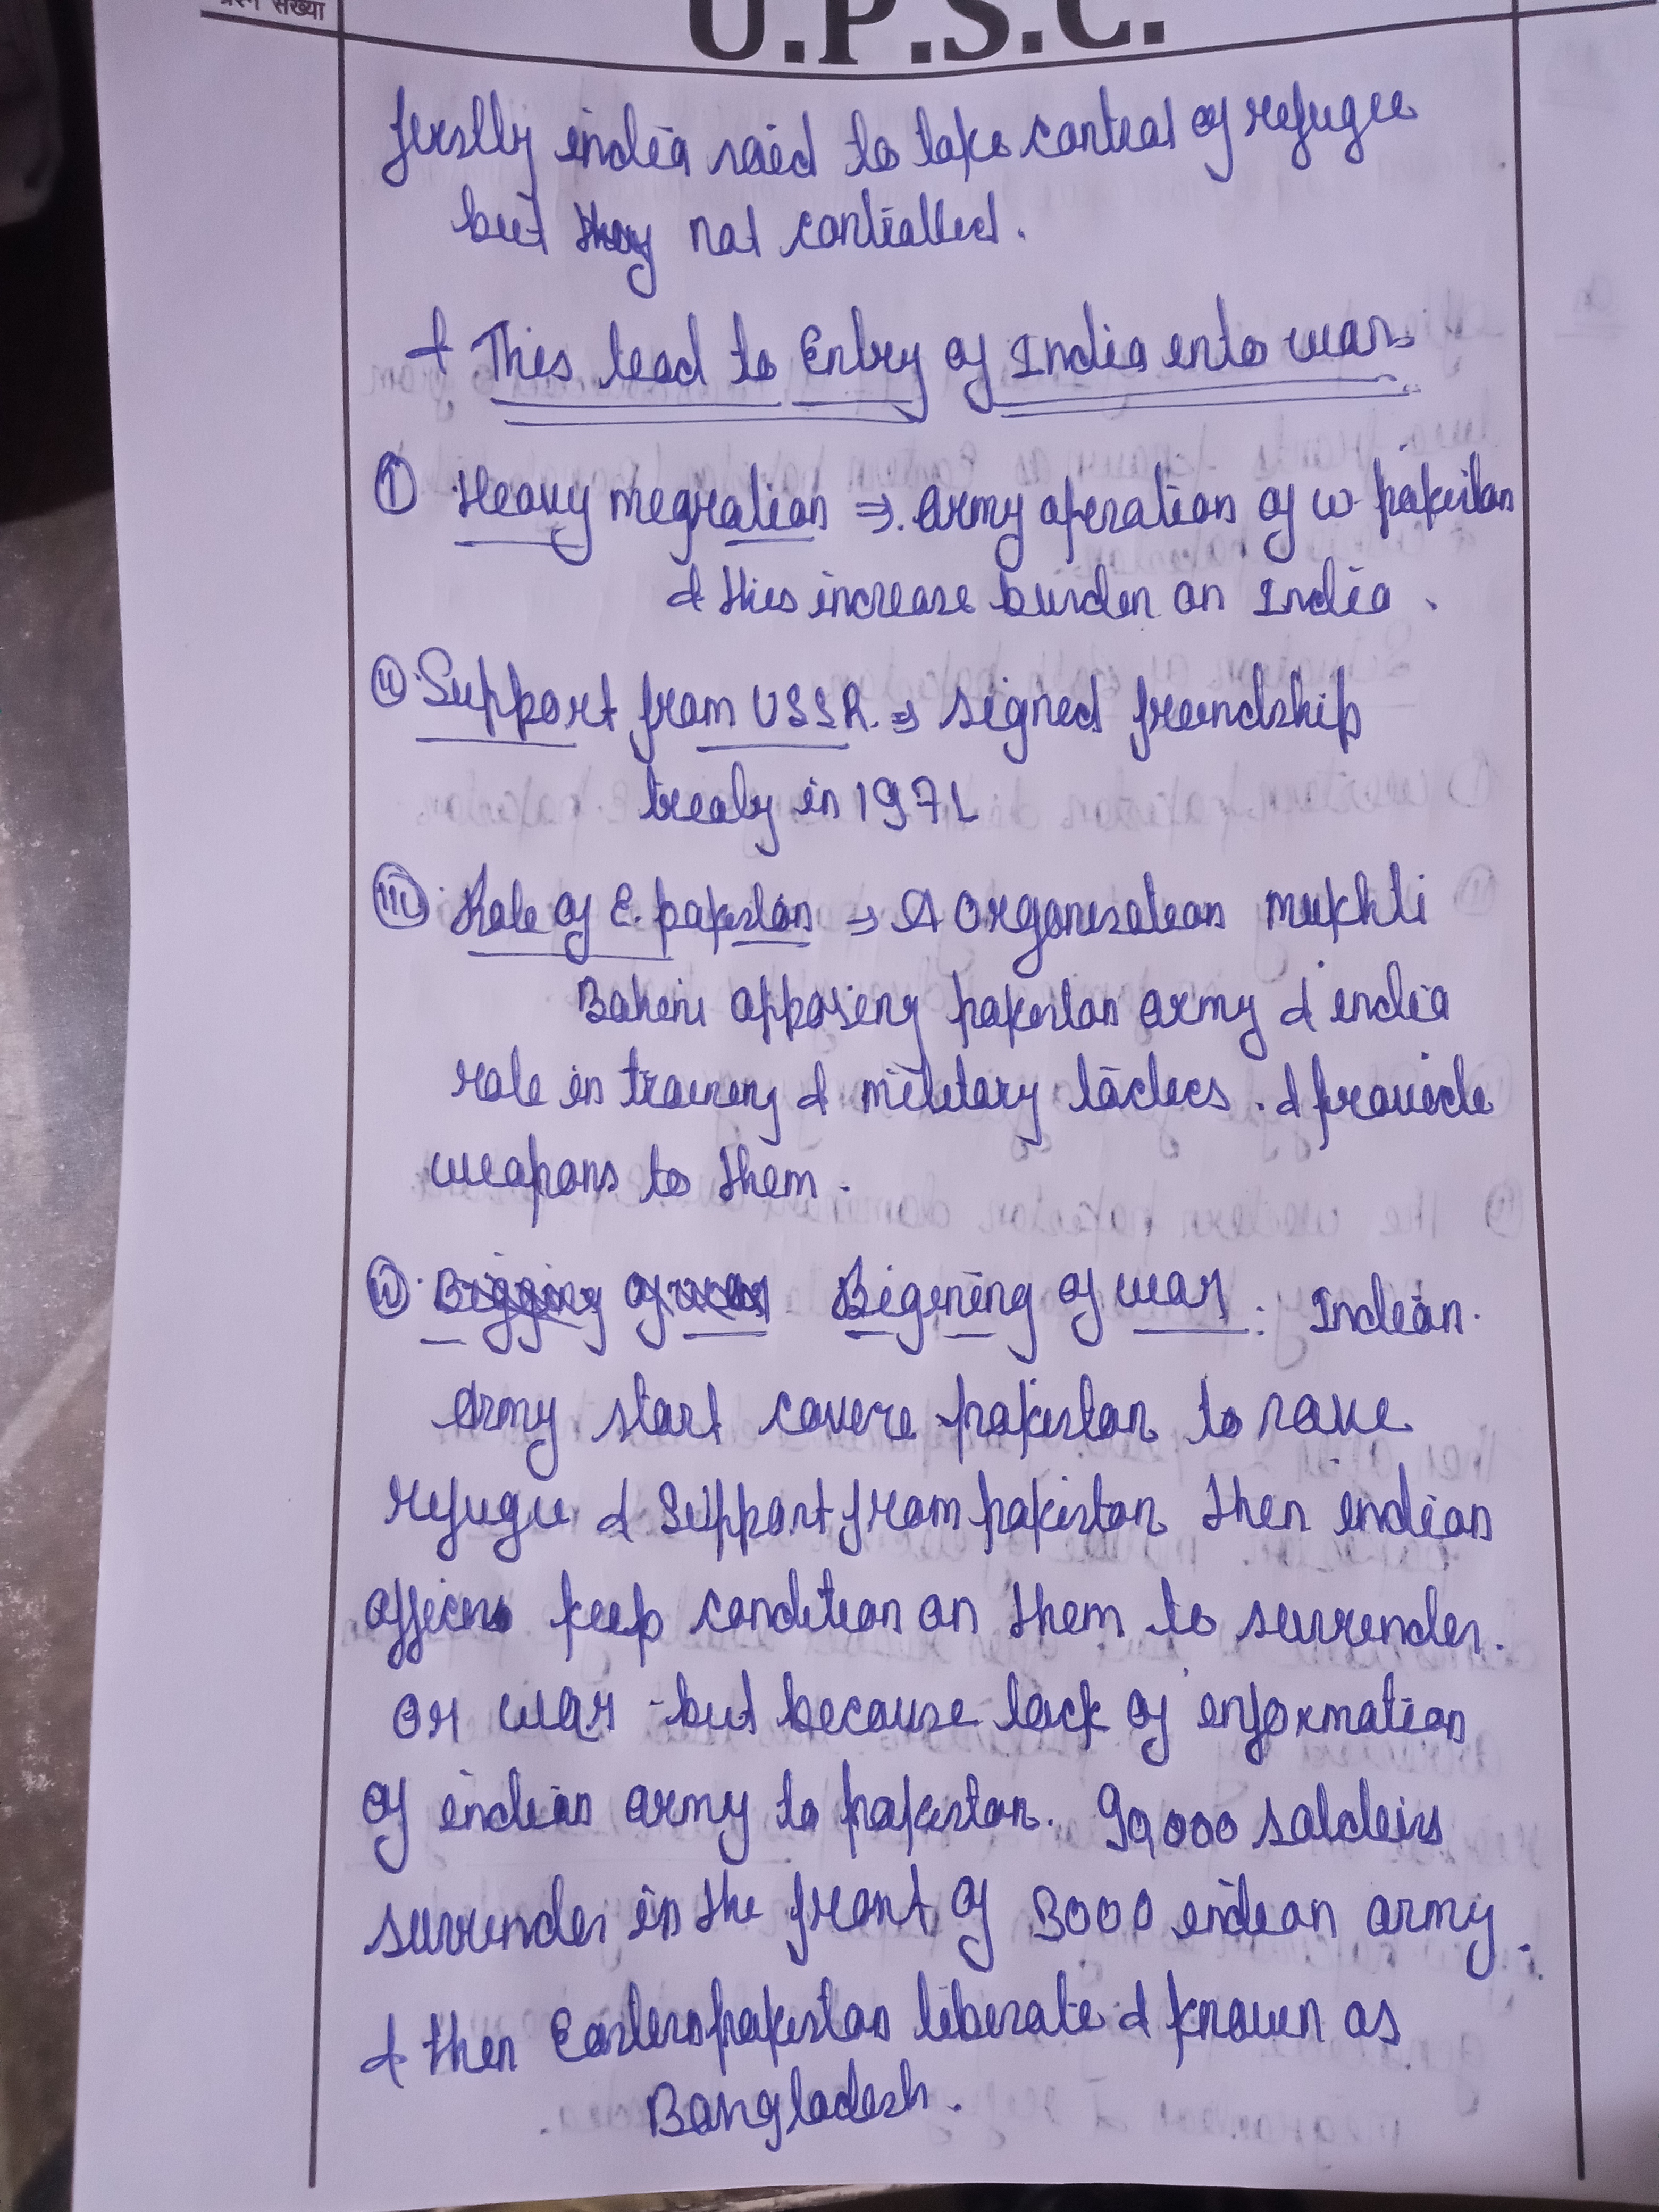 प्रश्न संख्या
U.P.S.C.
firstly india said to take control of refugee
but they not controlled.
& This lead to Entry of India into war.
① Heavy megration ⇒ Army operation of w pakistan
& this increase burden on India.
② Support from USSR. ⇒ signed freindship
treaty in 1971
③ Role of E. pakistan ⇒ A organisation mukhti
Bahini opposing pakistan army & india
role in training & military tactics. & provide
weapons to them.
④ Bigening of war : Indian.
Army start covere pakistan to save
refugee & Support from pakistan then indian
officers keep condition on them to surrender.
or war - but because lack of information
of indian army to pakistan. 90,000 soldeirs
surrender in the front of 3000 indean army.
& then Eastern pakistan liberate & known as
Bangladesh.